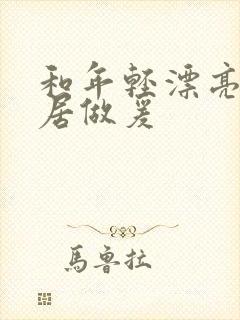 和年轻漂亮
居做爰
馬魯拉